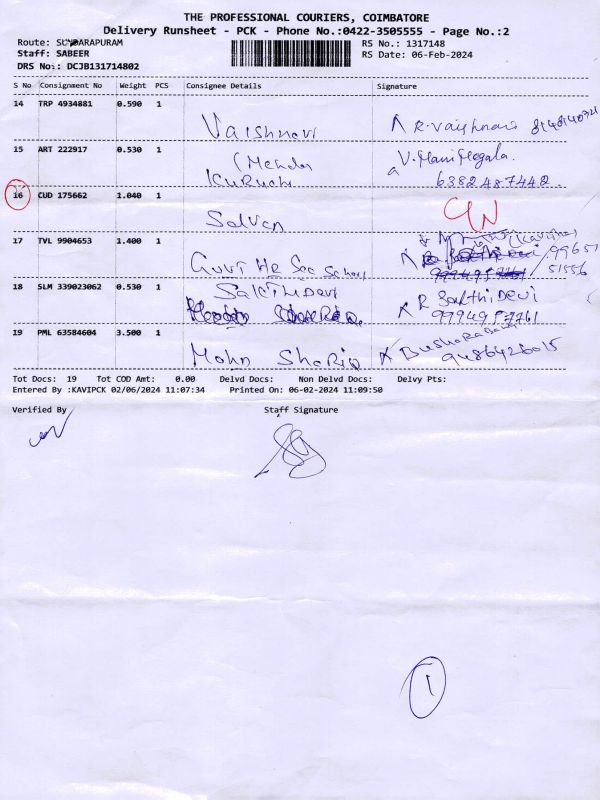 THE PROFESSIONAL COURIERS, COIMBATORE
Delivery Runsheet - PCK - Phone No.:0422-3505555 - Page No.:2
Route: SUNDARAPURAM
RS No.: 1317148
Staff: SABEER
RS Date: 06-Feb-2024
DRS No.: DCJB131714802
S No Consignment No Weight PCS Consignee Details Signature
14 TRP 4934881 0.590 1
Vaishnavi R. Vaishnavi
15 ART 222917 0.530 1
V. Mani Megala.
Kuruchi 6382487442
16 CUD 175662 1.040 1
Selvan
17 TVL 9904653 1.400 1
Guvt Hr Sec School 99651
51556
18 SLM 339023062 0.530 1
Sakthi Devi R Sakthi Devi
9994957761
19 PML 63584604 3.500 1
Mohn Sharia 9486426015
Tot Docs: 19 Tot COD Amt: 0.00 Delvd Docs: Non Delvd Docs: Delvy Pts:
Entered By :KAVIPCK 02/06/2024 11:07:34 Printed On: 06-02-2024 11:09:50
Verified By Staff Signature
1